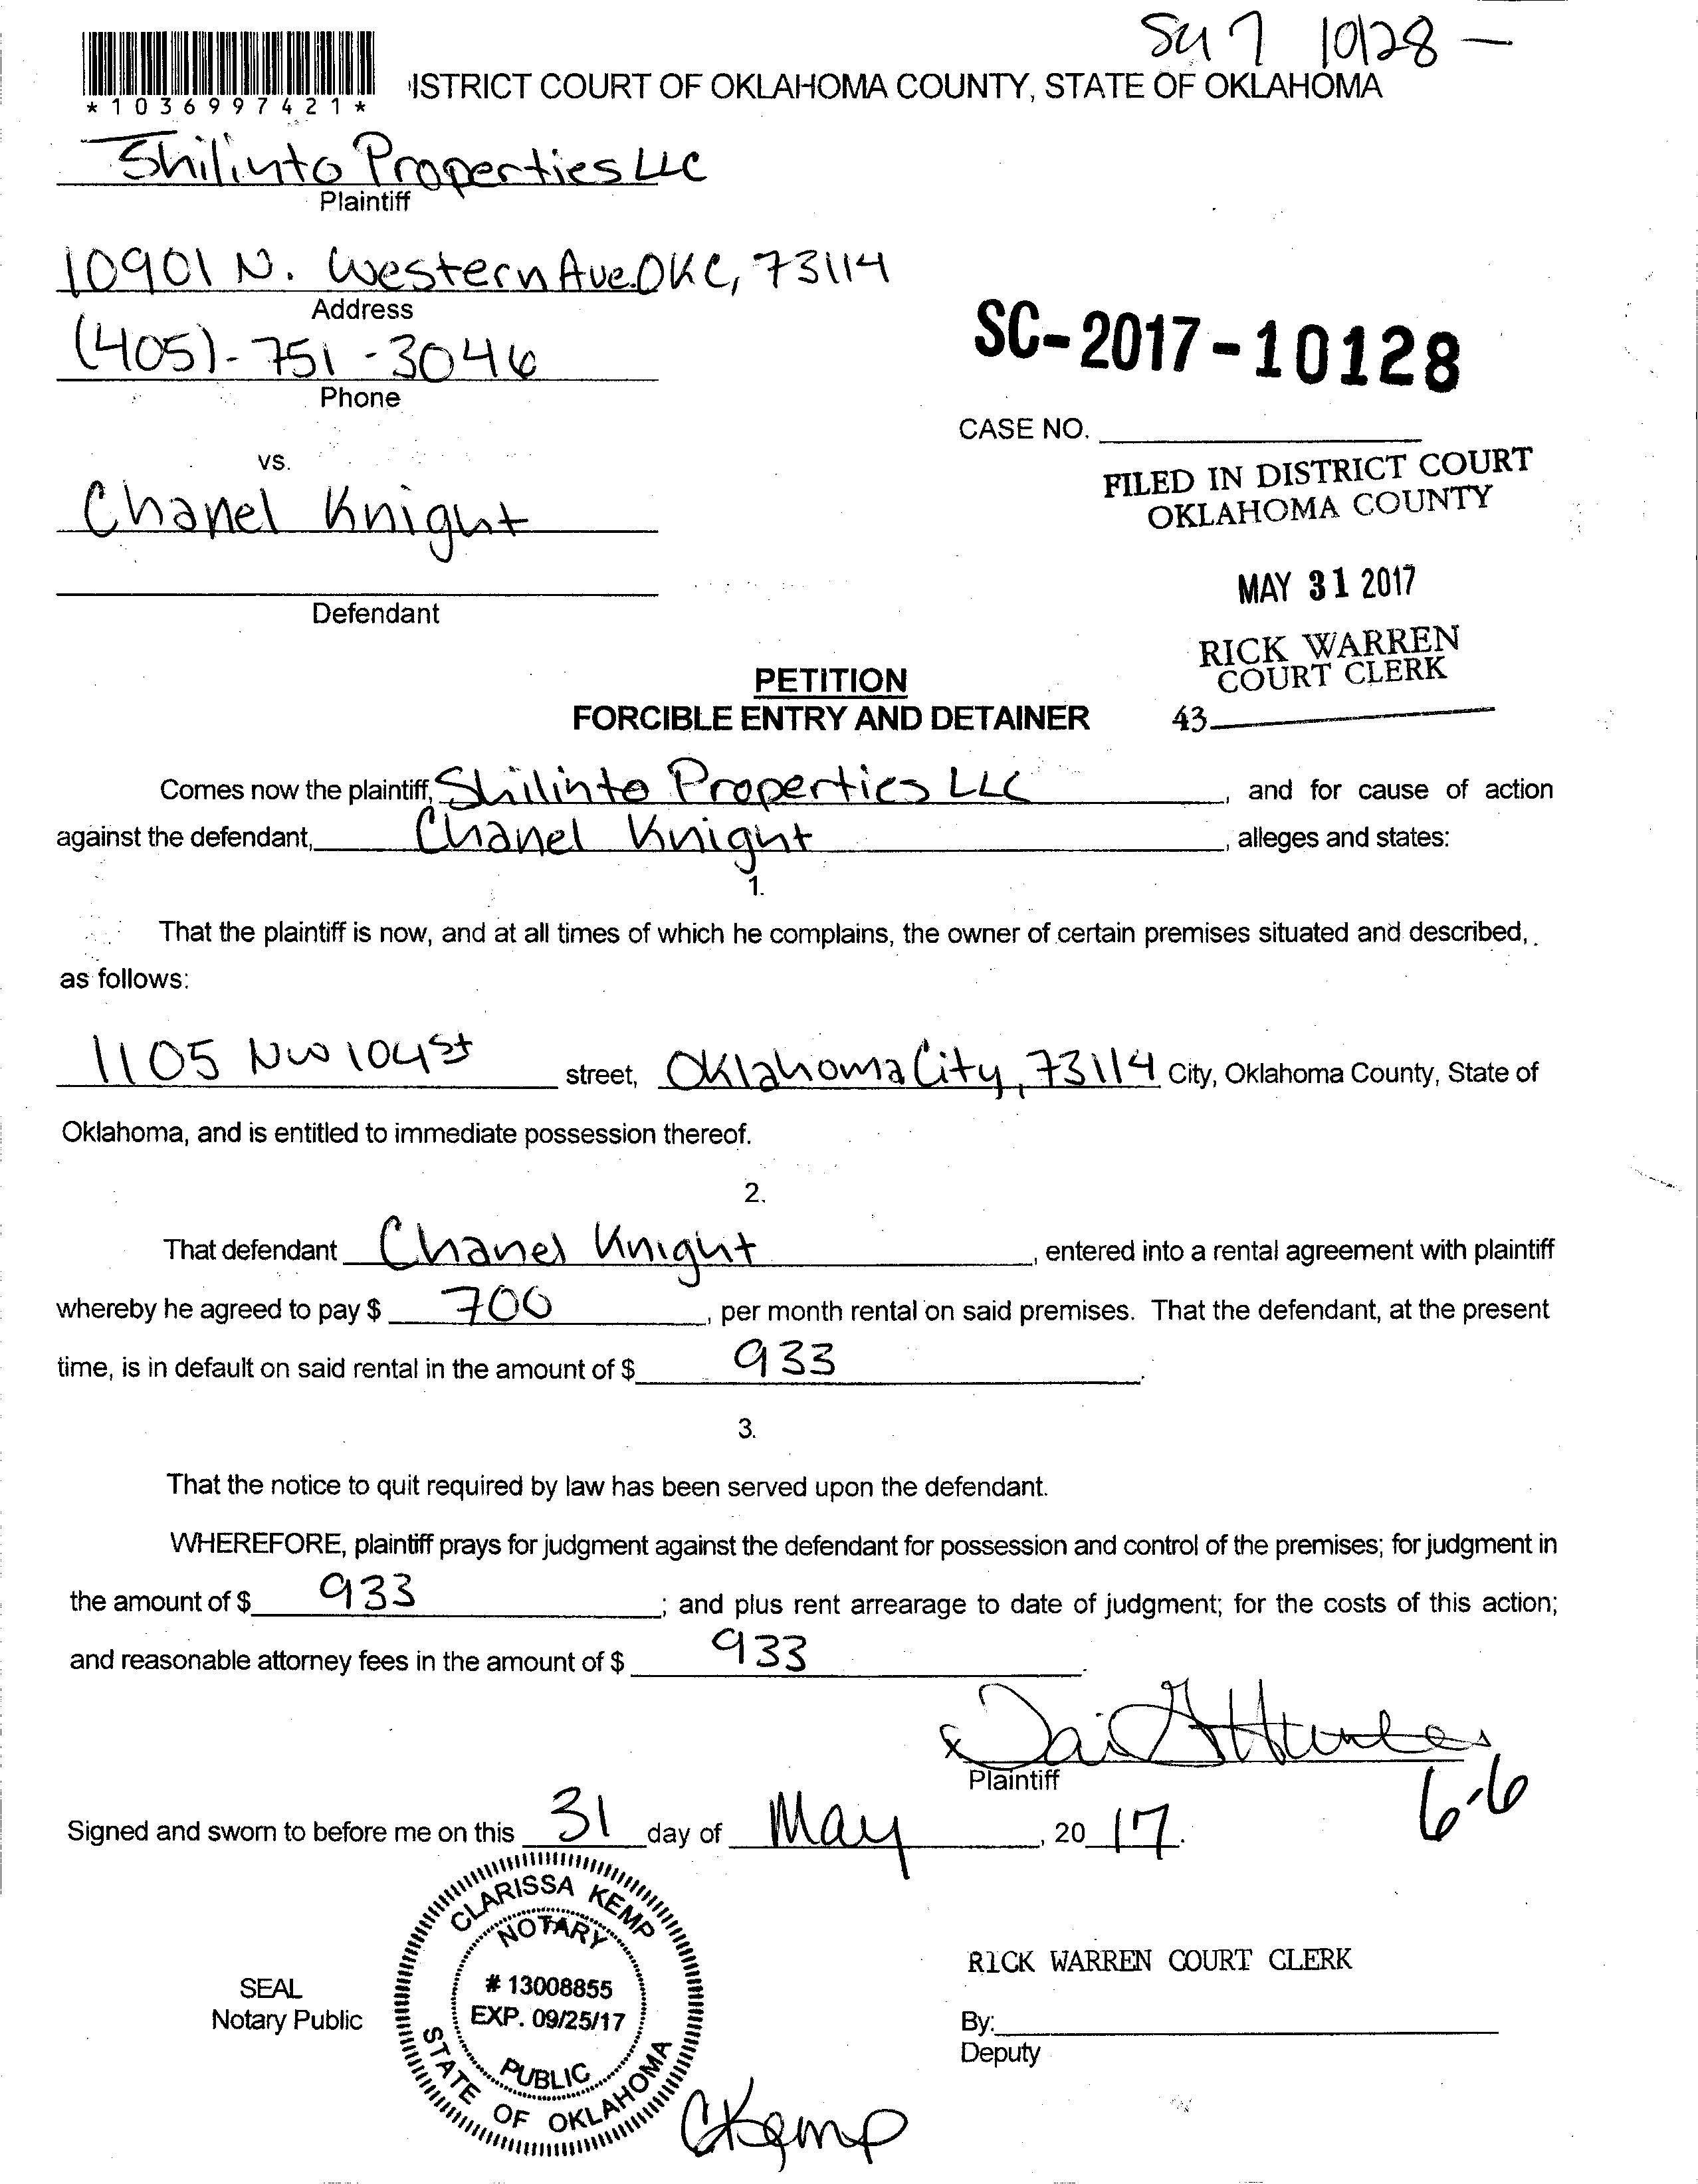 Su 7 10128 —
*1036997421*
ISTRICT COURT OF OKLAHOMA COUNTY, STATE OF OKLAHOMA
Shilinto Properties LLC
Plaintiff
10901 N. Western Ave. OKC, 73114
Address
(405)-751-3046
Phone
SC-2017-10128
CASE NO.
vs.
FILED IN DISTRICT COURT
OKLAHOMA COUNTY
Chanel Knight
MAY 31 2017
Defendant
RICK WARREN
COURT CLERK
43
PETITION
FORCIBLE ENTRY AND DETAINER
Comes now the plaintiff, Shilinto Properties LLC, and for cause of action
against the defendant, Chanel Knight, alleges and states:
1.
That the plaintiff is now, and at all times of which he complains, the owner of certain premises situated and described,
as follows:
1105 NW 104st street, Oklahoma City, 73114 City, Oklahoma County, State of
Oklahoma, and is entitled to immediate possession thereof.
2.
That defendant Chanel Knight, entered into a rental agreement with plaintiff
whereby he agreed to pay $ 700, per month rental on said premises. That the defendant, at the present
time, is in default on said rental in the amount of $ 933.
3.
That the notice to quit required by law has been served upon the defendant.
WHEREFORE, plaintiff prays for judgment against the defendant for possession and control of the premises; for judgment in
the amount of $ 933; and plus rent arrearage to date of judgment; for the costs of this action;
and reasonable attorney fees in the amount of $ 933.
x
Plaintiff
6-6
Signed and sworn to before me on this 31 day of May, 20 17.
CLARISSA KEMP
NOTARY
# 13008855
EXP. 09/25/17
PUBLIC
STATE OF OKLAHOMA
SEAL
Notary Public
RICK WARREN COURT CLERK
By:
Deputy
CKemp